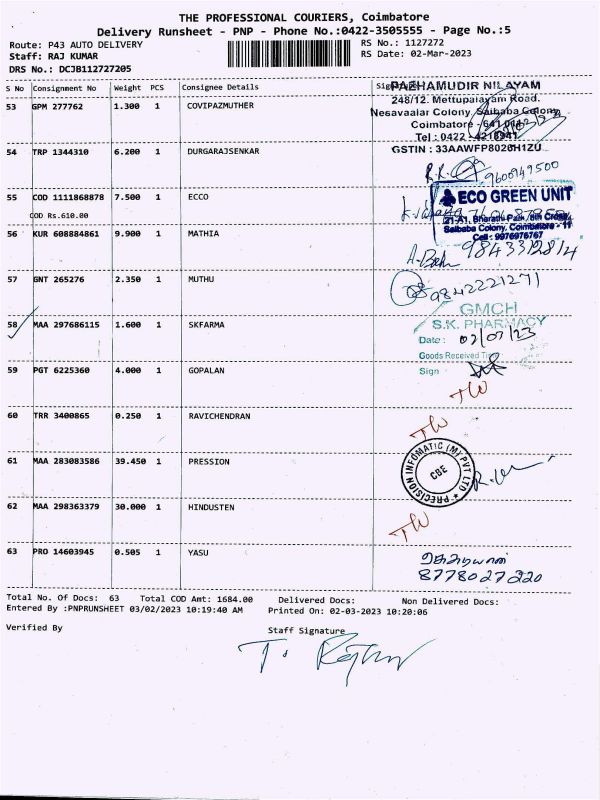 THE PROFESSIONAL COURIERS, Coimbatore
Delivery Runsheet - PNP - Phone No.:0422-3505555 - Page No.:5
Route: P43 AUTO DELIVERY
RS No.: 1127272
Staff: RAJ KUMAR
RS Date: 02-Mar-2023
DRS No.: DCJB112727205
S No Consignment No Weight PCS Consignee Details
53 GPM 277762 1.300 1 COVIPAZMUTHER
PAZHAMUDIR NILAYAM
248/12. Mettupalayam Road.
Nesavaalar Colony, Saibaba Colony
Coimbatore - 641 042
Tel : 0422 - 4218941
GSTIN : 33AAWFP8020H1ZU
54 TRP 1344310 6.200 1 DURGARAJSENKAR
9600949500
55 COD 1111868878 7.500 1 ECCO
COD Rs.610.00
ECO GREEN UNIT
21-A1, Bharathi Park, 8th Cross
Saibaba Colony, Coimbatore - 11
Cell : 9976976767
56 KUR 608884861 9.900 1 MATHIA
57 GNT 265276 2.350 1 MUTHU
9842221271
58 MAA 297686115 1.600 1 SKFARMA
GMCH
S.K. PHARMACY
Date :
Goods Received
Sign
59 PGT 6225360 4.000 1 GOPALAN
60 TRR 3400865 0.250 1 RAVICHENDRAN
61 MAA 283083586 39.450 1 PRESSION
PRECISION INFOMATIC (M) PVT LTD
CBE
62 MAA 298363379 30.000 1 HINDUSTEN
63 PRO 14603945 0.505 1 YASU
8778027220
Total No. Of Docs: 63 Total COD Amt: 1684.00 Delivered Docs: Non Delivered Docs:
Entered By :PNPRUNSHEET 03/02/2023 10:19:40 AM Printed On: 02-03-2023 10:20:06
Verified By
Staff Signature